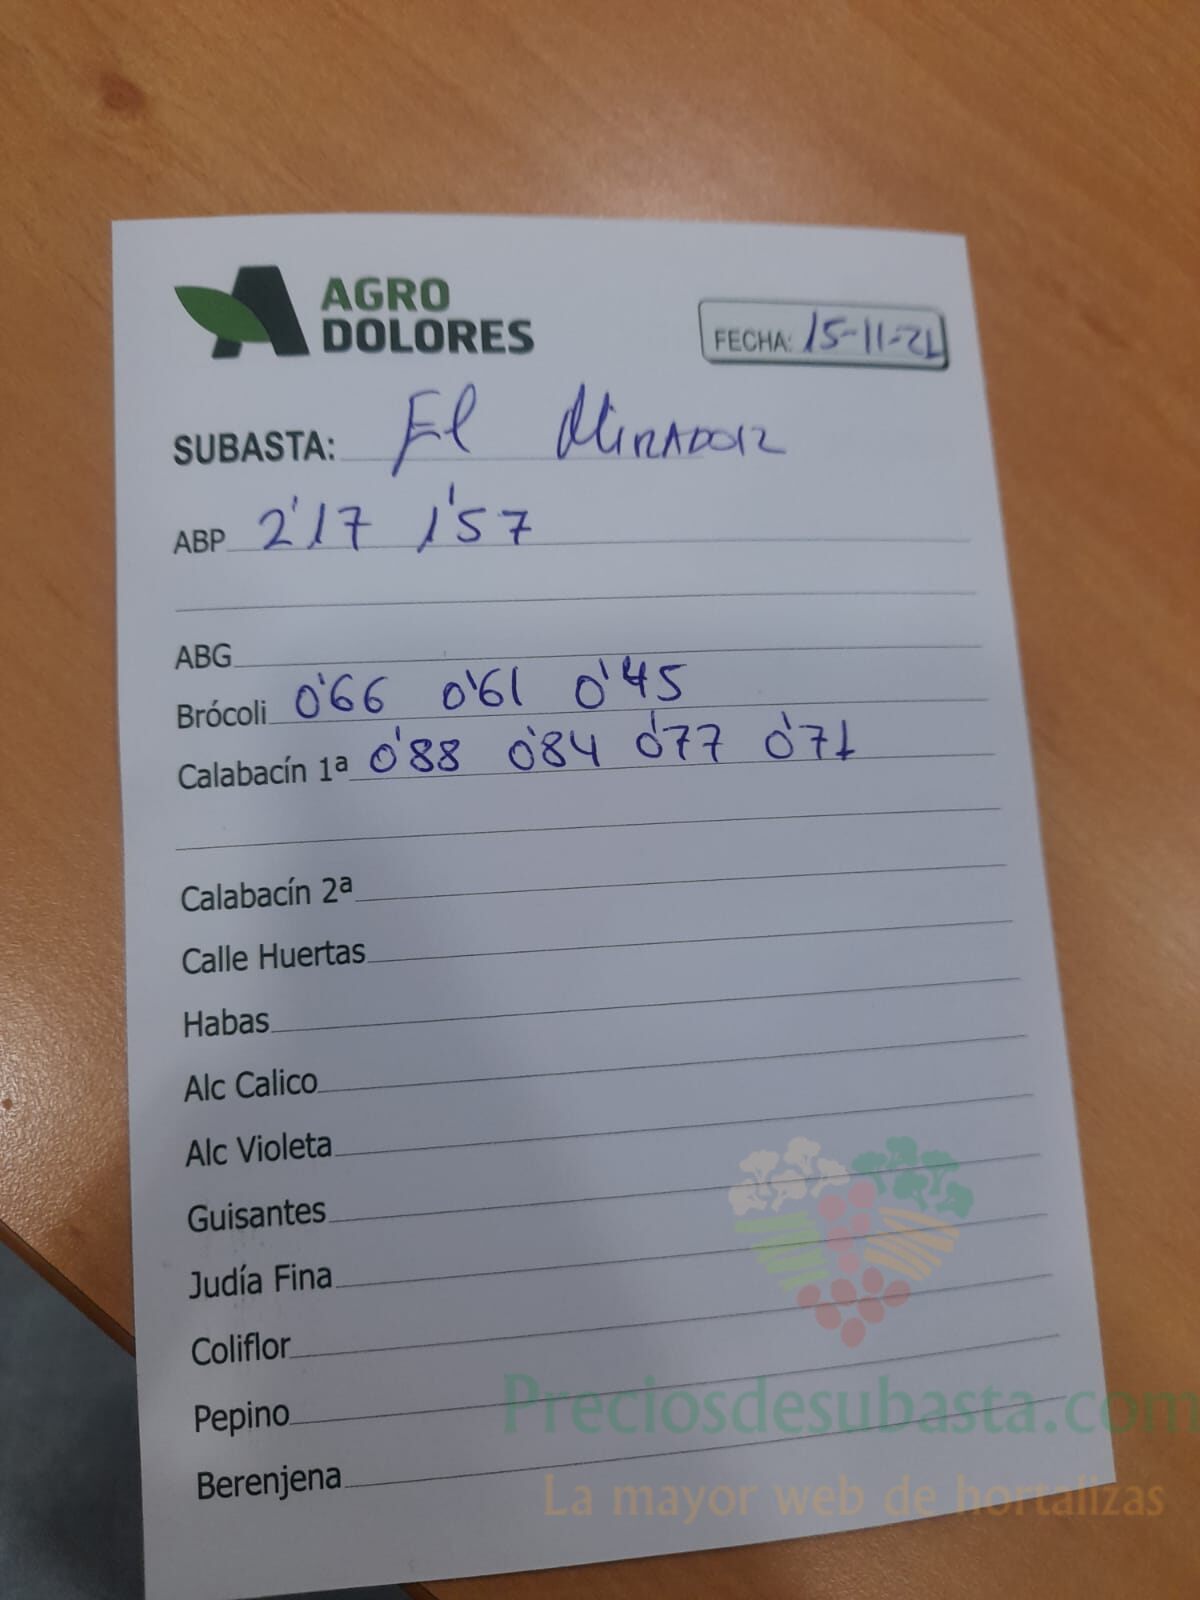 AGRO
DOLORES
FECHA: 15-11-21
SUBASTA: El MIRADOR
ABP 2'17 1'57
ABG
Brócoli 0'66 0'61 0'45
Calabacín 1ª 0'88 0'84 0'77 0'71
Calabacín 2ª
Calle Huertas
Habas
Alc Calico
Alc Violeta
Guisantes
Judía Fina
Coliflor
Pepino
Berenjena
Preciosdesubasta.com
La mayor web de hortalizas